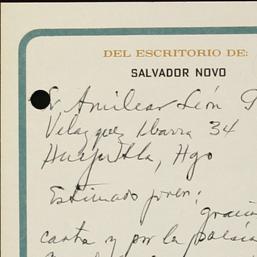 DEL ESCRITORIO DE:
SALVADOR NOVO
Sr Amilcar León
Velazquez Ibarra 34
Huejutla, Hgo
Estimado joven:
gracias
carta y por la poesía